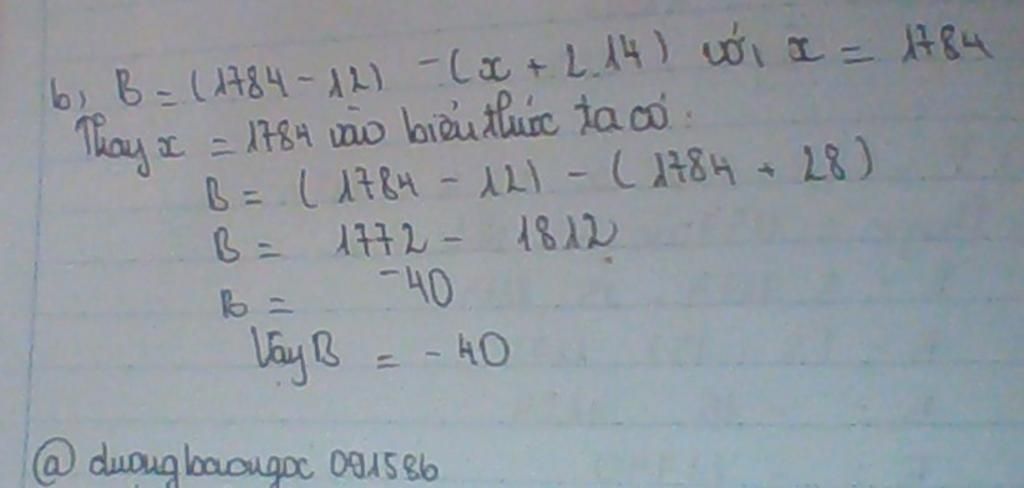 b, B = (1784 - 12) - (x + 2.14) với x = 1784
Thay x = 1784 vào biểu thức ta có:
B = (1784 - 12) - (1784 + 28)
B = 1772 - 1812
B = -40
Vậy B = -40
@ duongbaongoc 091586